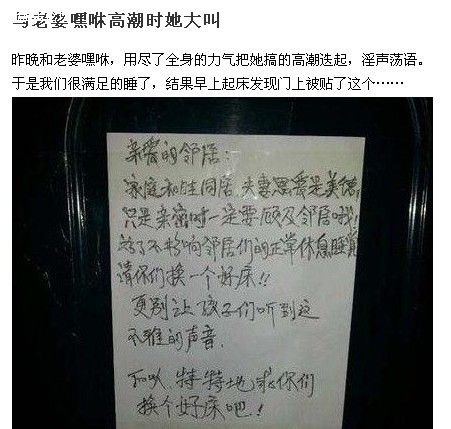 与老婆嘿咻高潮时她大叫
昨晚和老婆嘿咻，用尽了全身的力气把她搞的高潮迭起，淫声荡语。
于是我们很满足的睡了，结果早上起床发现门上被贴了这个……
亲爱的邻居：
家庭和生同居 夫妻恩爱是美德,
只是亲密时一定要顾及邻居哦,
为了不影响邻居们的正常休息睡觉
请你们换一个好床!!
更别让孩子们听到这
不雅的声音.
所以.特特地求你们
换个好床吧!